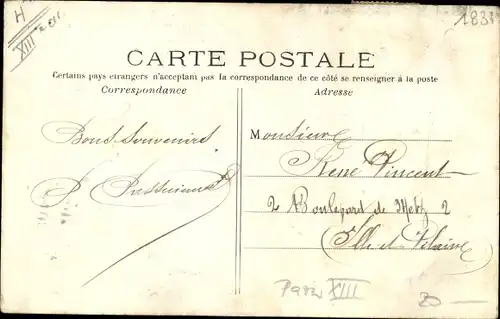 H
XIII
1838
CARTE POSTALE
Certains pays étrangers n'acceptant pas la correspondance de ce côté se renseigner à la poste
Correspondance
Adresse
Bons souvenirs
Monsieur
René Vincent
2 Boulevard de Metz 2
Ille et Vilaine
Paris XIII
20 —